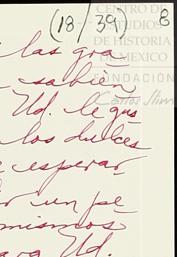 (18/39) 8
CENTRO DE
ESTUDIOS
DE HISTORIA
DE MEXICO
FUNDACIÓN
Carlos Slim
las gra-
sabién
Ud. le gus
los dulces
esperar
un pe
mismos
para Ud.